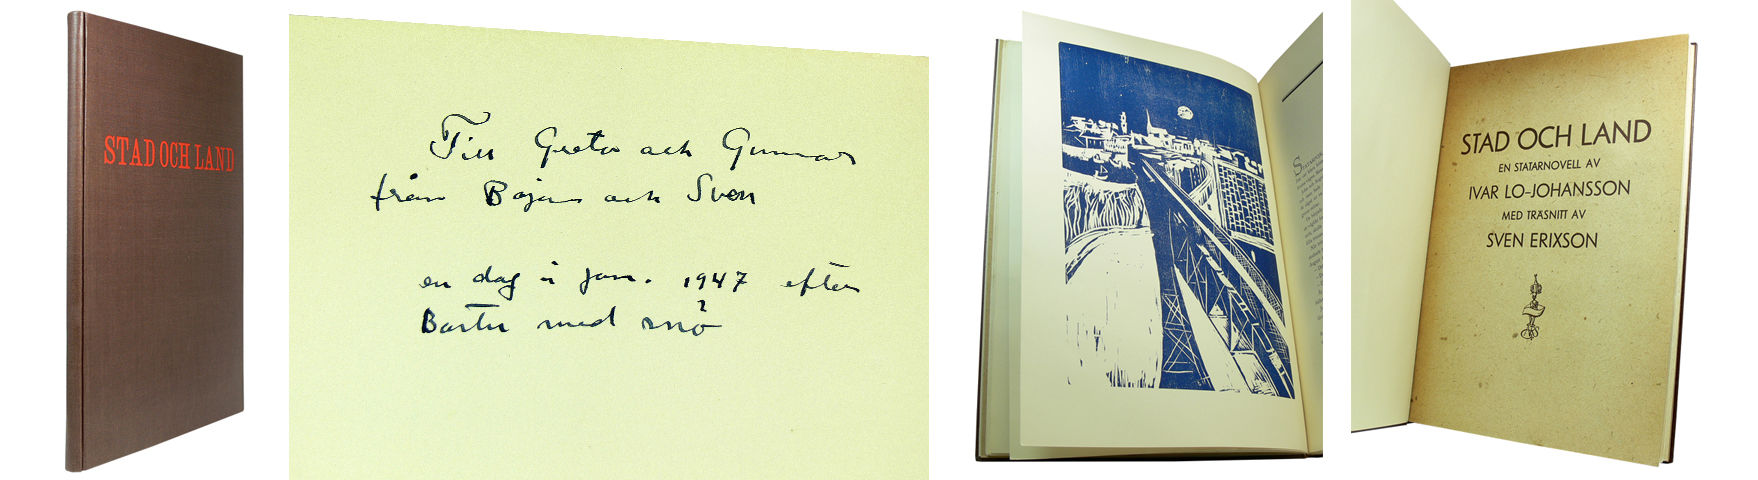 STAD OCH LAND
Till Greta och Gunnar
från Bojan och Sven
en dag i jan. 1947 efter
med snö
STAD OCH LAND
EN STATARNOVELL AV
IVAR LO-JOHANSSON
MED TRÄSNITT AV
SVEN ERIXSON